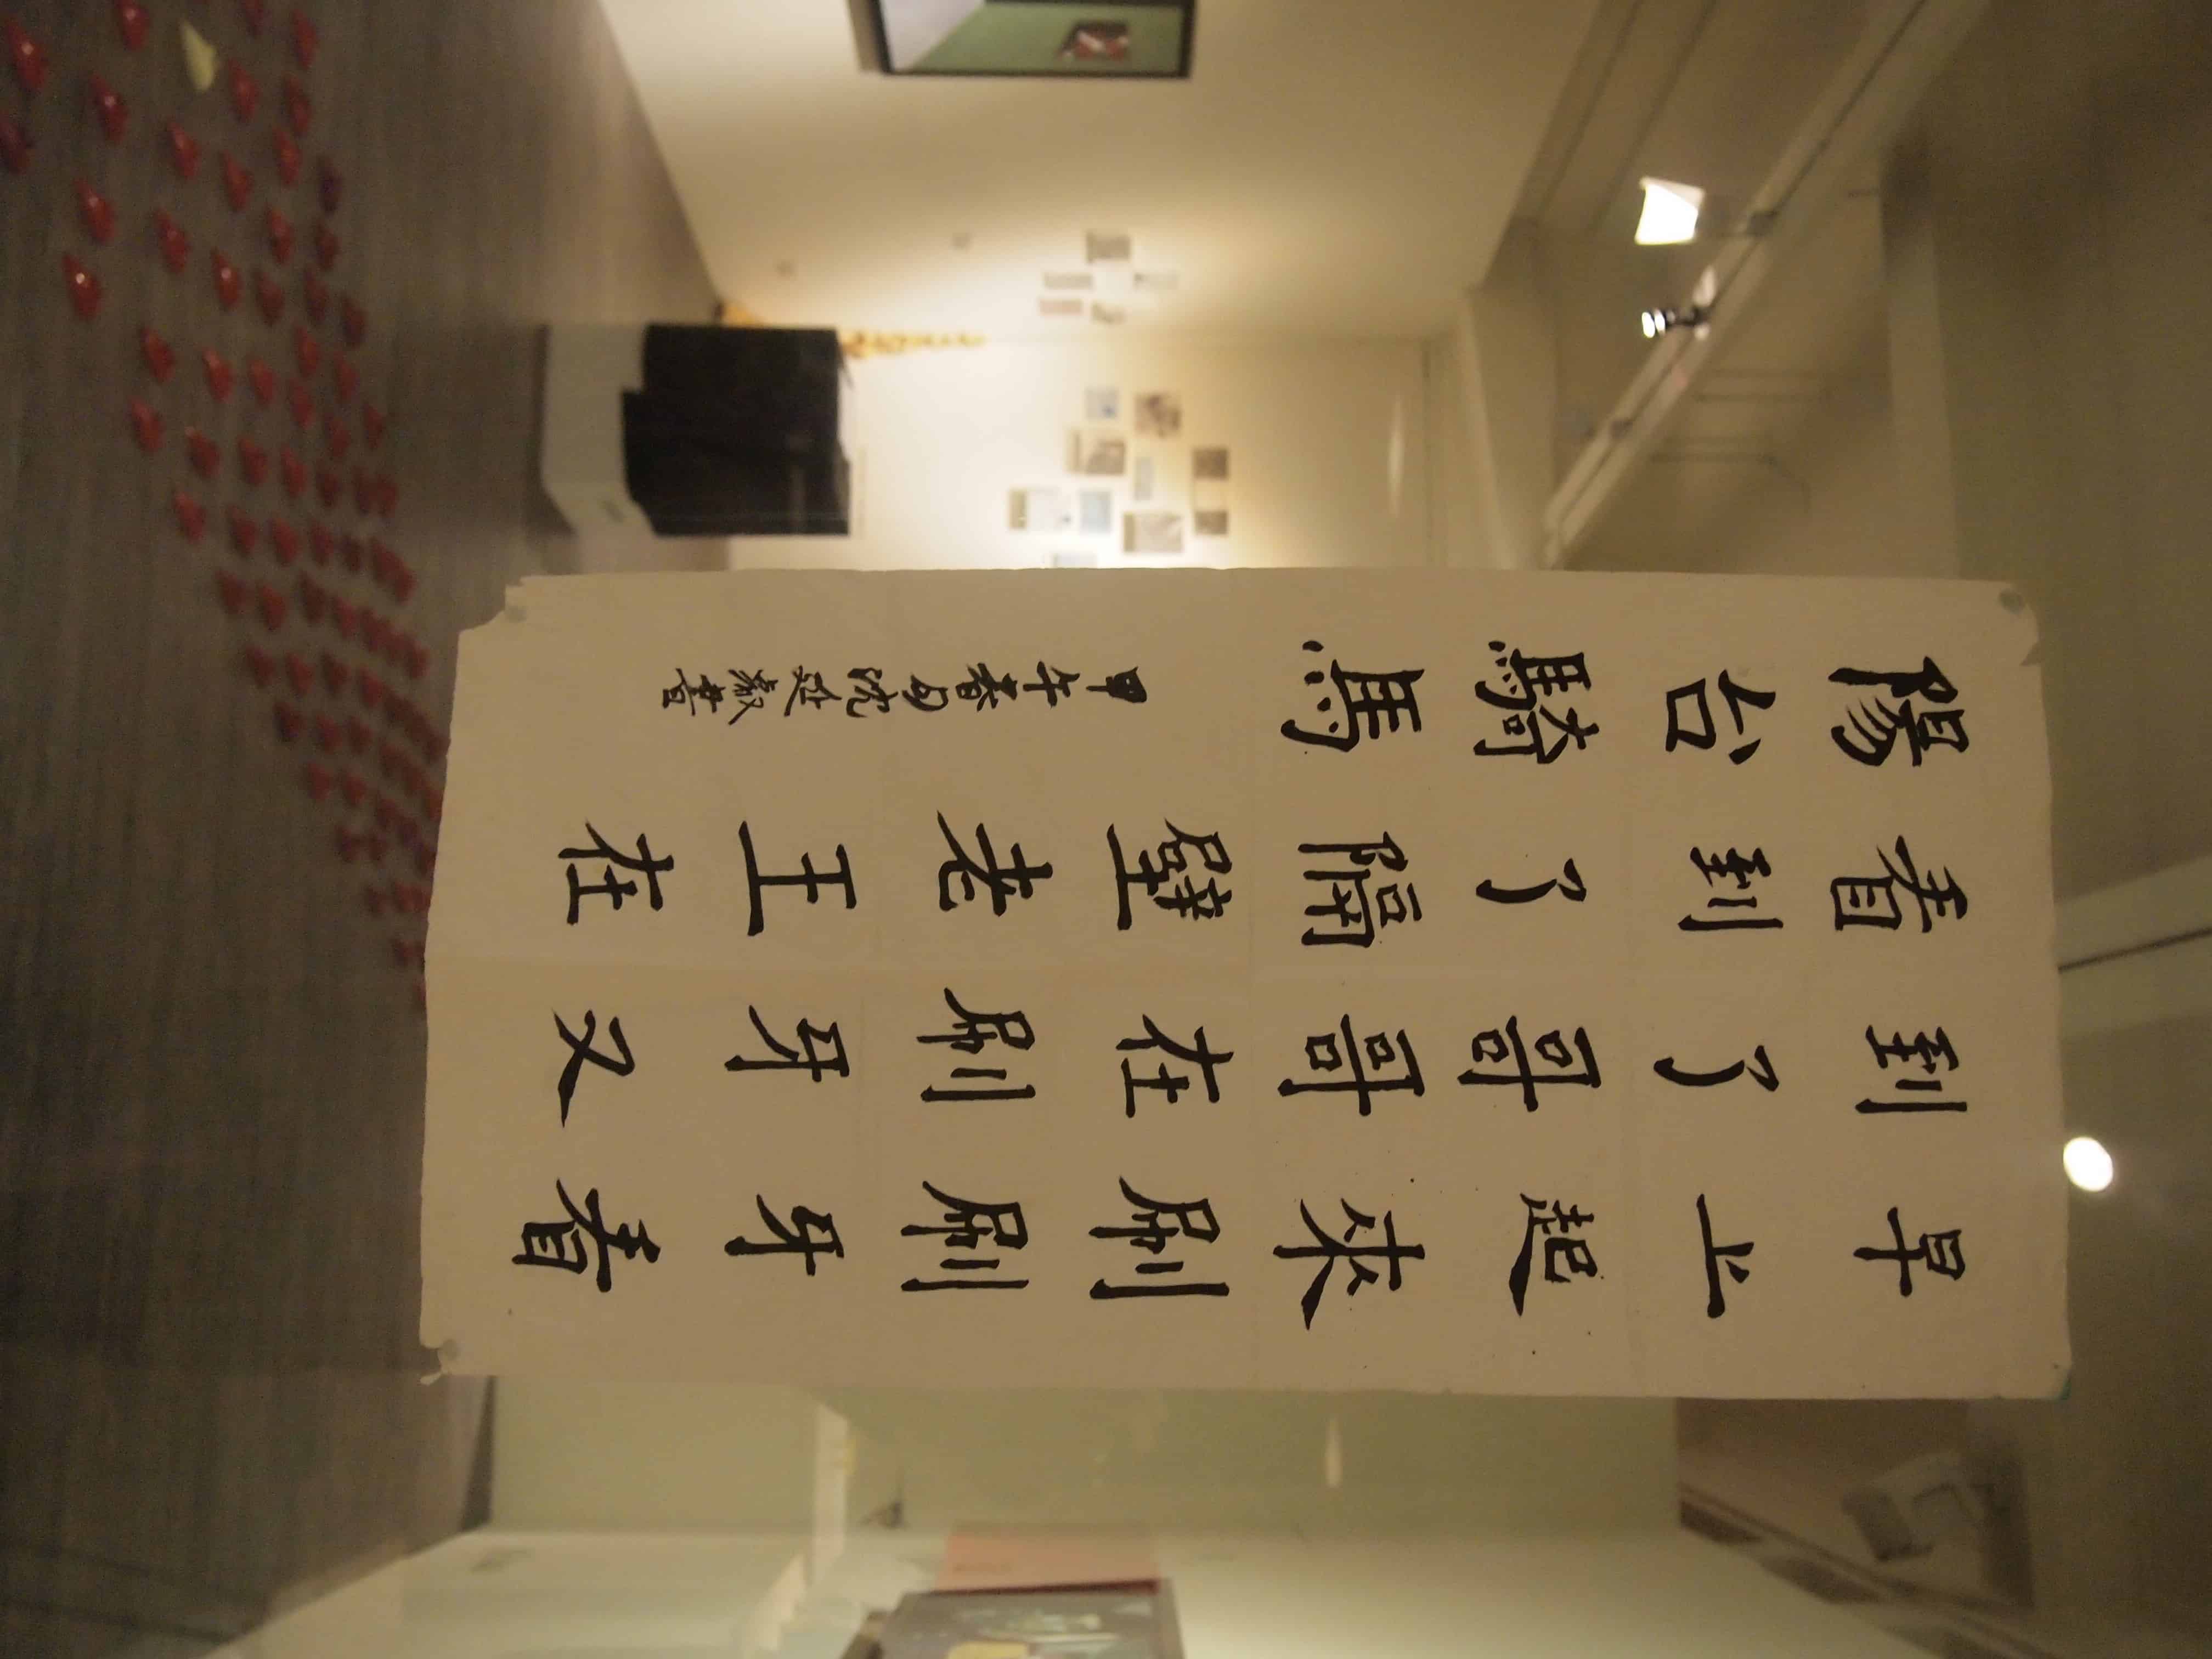 早上起來刷刷牙看
到了哥哥在刷牙又
看到了隔壁老王在
陽台騎馬
甲午春月沈書